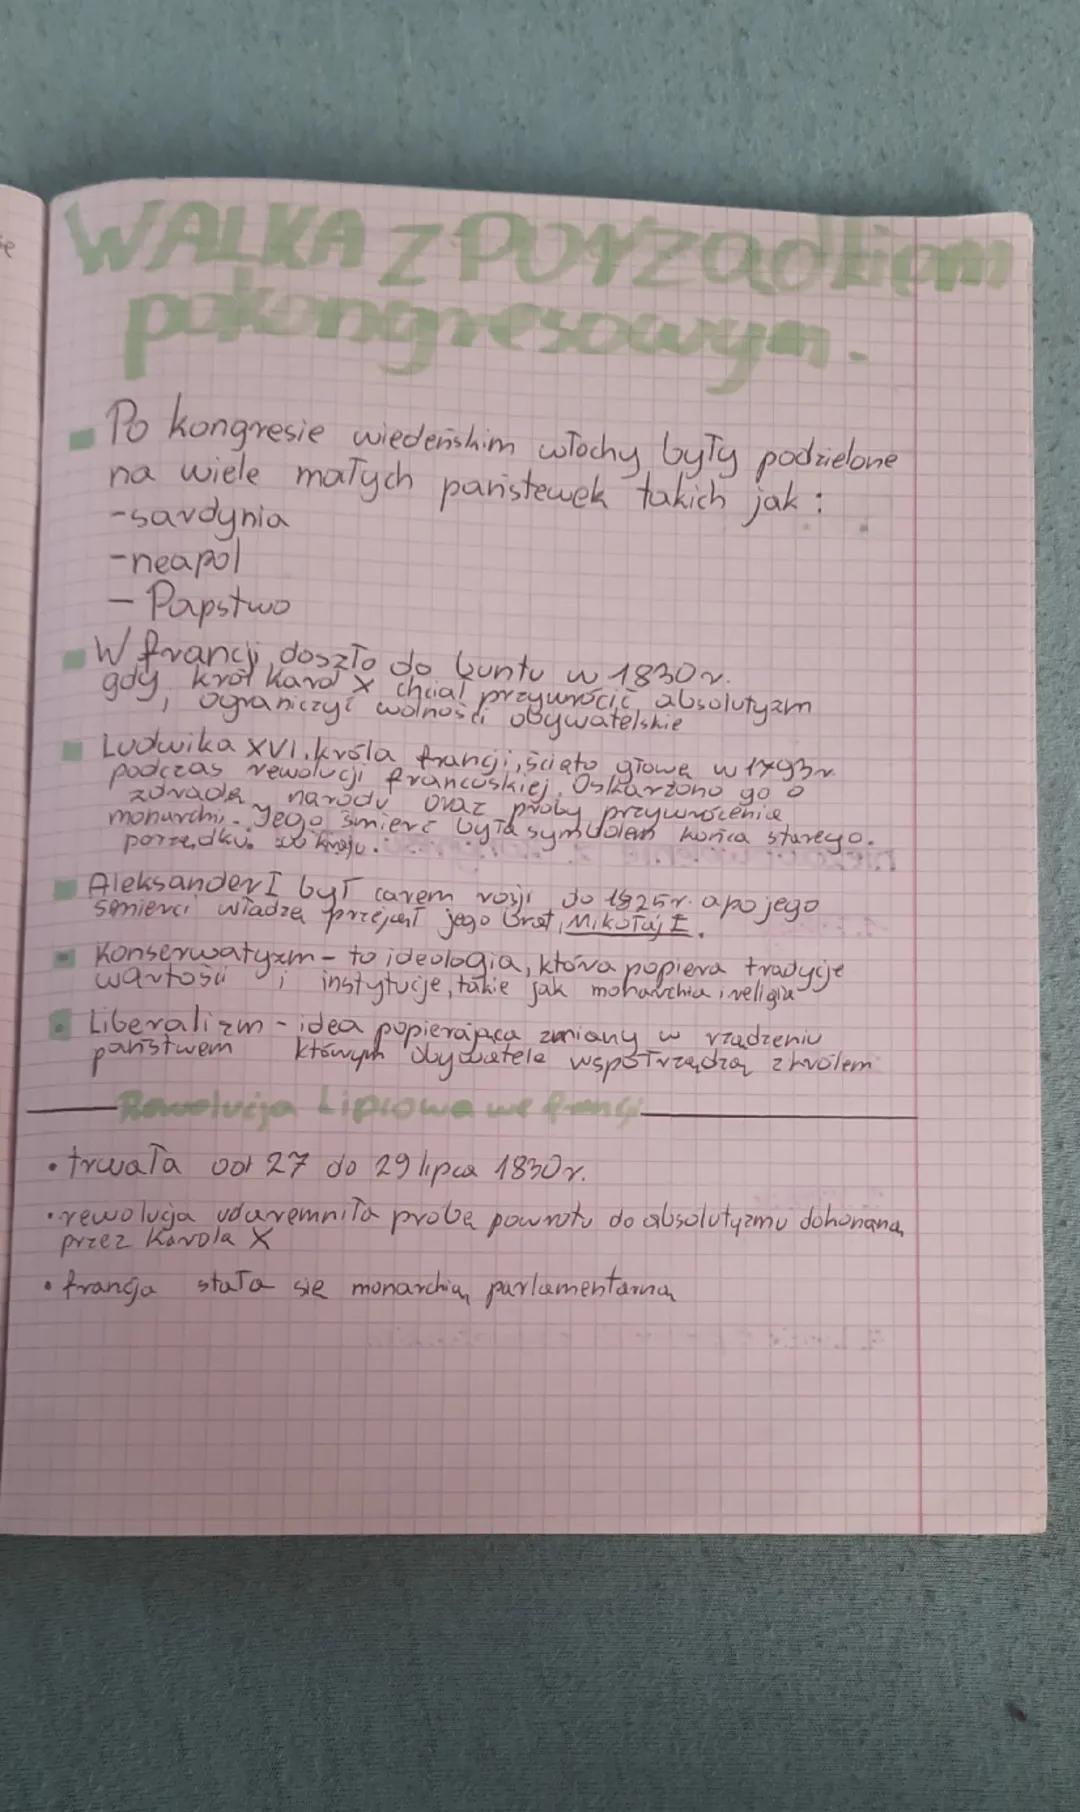 WALKA z PORZądkiem
pokongresowym.
Po kongresie wiedeńskim włochy były podzielone
na wiele małych państewek takich jak :
-sardynia
-neapol
- Papstwo
W francji doszło do buntu w 1830r.
gdy król Karol X chciał przywrócić absolutyzm
i ograniczyć wolności obywatelskie
Ludwika XVI. króla francji, ścięto głowę w 1793r
podczas rewolucji francuskiej. Oskarżono go o
zdradę narodu oraz próby przywrócenia
monarchi. Jego śmierć była symbolem końca starego.
porządku. w kraju.
Aleksander I był carem rosji do 1825r. a po jego
śmierci władzę przejął jego brat, Mikołaj I.
Konserwatyzm - to ideologia, która popiera tradycje
wartości i instytucje, takie jak monarchia i religia
Liberalizm - idea popierająca zmiany w rządzeniu
państwem którym obywatele współrządzą z królem
Rewolucja Lipcowa we francji
• trwała od 27 do 29 lipca 1830r.
• rewolucja udaremniła probę powrotu do absolutyzmu dokonaną
przez Karola X
• francja stała się monarchią parlamentarną